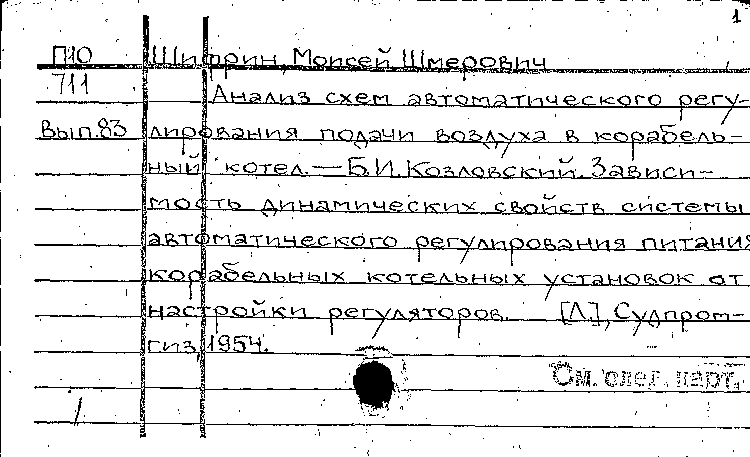 1
П10 Шифрин, Моисей Шмерович
711 Анализ схем автоматического регу-
Вып.83 лирования подачи воздуха в корабель-
ный котел.—Б.И.Козловский. Зависи-
мость динамических свойств системы
автоматического регулирования питания
корабельных котельных установок от
настройки регуляторов. [Л.], Судпром-
гиз, 1954.
См. след. карт.